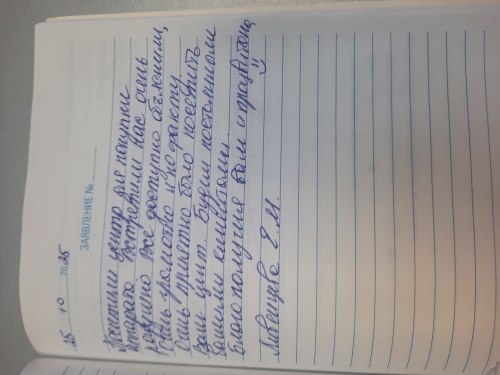 25 10 2025
ЗАЯВЛЕНИЕ №
Посетили центр для покупки
аппарата. Встретили нас очень
все доступно объяснили,
очень грамотно и по факту.
Очень приятно было посетить
Ваш центр. Будем постоянными
Вашими клиентами.
Благополучия Вам и процветания
Ливенцева Е.М.